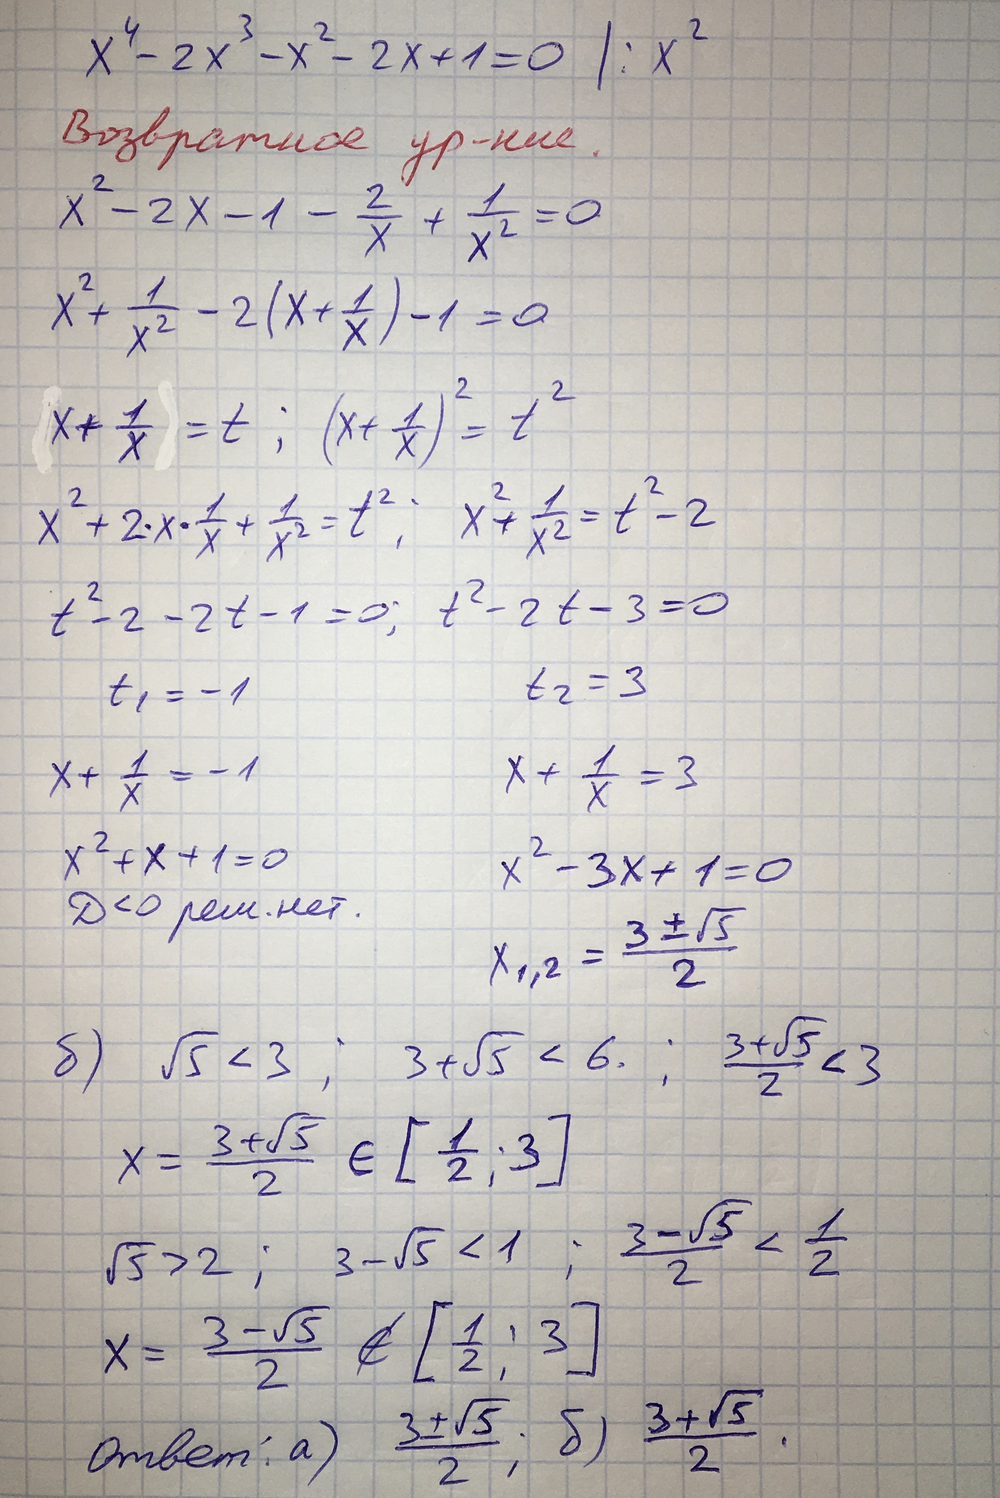 x⁴ - 2x³ - x² - 2x + 1 = 0 | : x²
Возвратное ур-ние.
x² - 2x - 1 - 2/x + 1/x² = 0
x² + 1/x² - 2(x + 1/x) - 1 = 0
(x + 1/x) = t ; (x + 1/x)² = t²
x² + 2·x·1/x + 1/x² = t² ; x² + 1/x² = t² - 2
t² - 2 - 2t - 1 = 0; t² - 2t - 3 = 0
t₁ = -1 t₂ = 3
x + 1/x = -1 x + 1/x = 3
x² + x + 1 = 0 x² - 3x + 1 = 0
D < 0 реш. нет.
x₁,₂ = (3 ± √5)/2
б) √5 < 3 ; 3 + √5 < 6. ; (3 + √5)/2 < 3
x = (3 + √5)/2 ∈ [1/2 ; 3]
√5 > 2 ; 3 - √5 < 1 ; (3 - √5)/2 < 1/2
x = (3 - √5)/2 ∉ [1/2 ; 3]
Ответ: а) (3 ± √5)/2 ; б) (3 + √5)/2 .